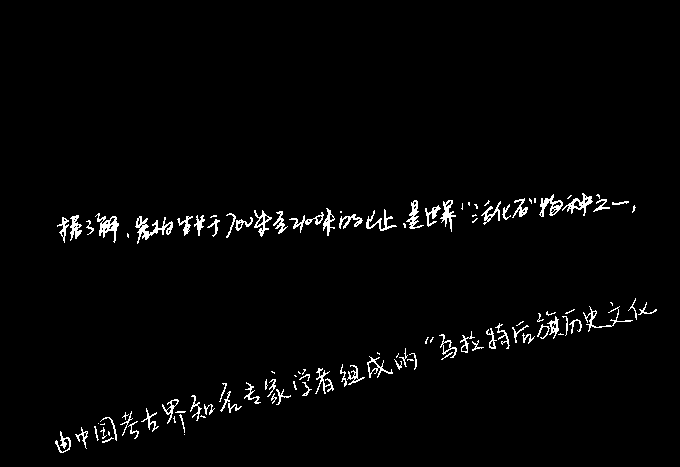 据了解,岩柏生于700米至2100米的山上,是世界“活化石”物种之一,
由中国考古界知名专家学者组成的“乌拉特后旗历史文化